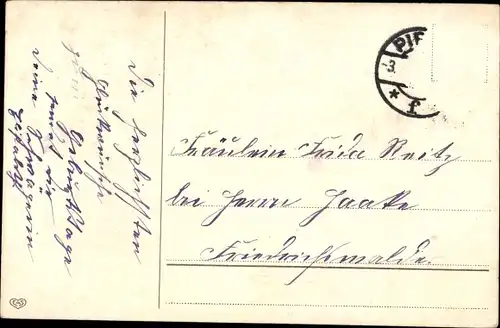 Die herzlichsten
Glückwünsche
zum
Geburtstage
sendet Dir
Deine Schwägerin
PIF
3.
* f
Fräulein Frida Reitz
bei Herrn Haacke
Friedrichswalde